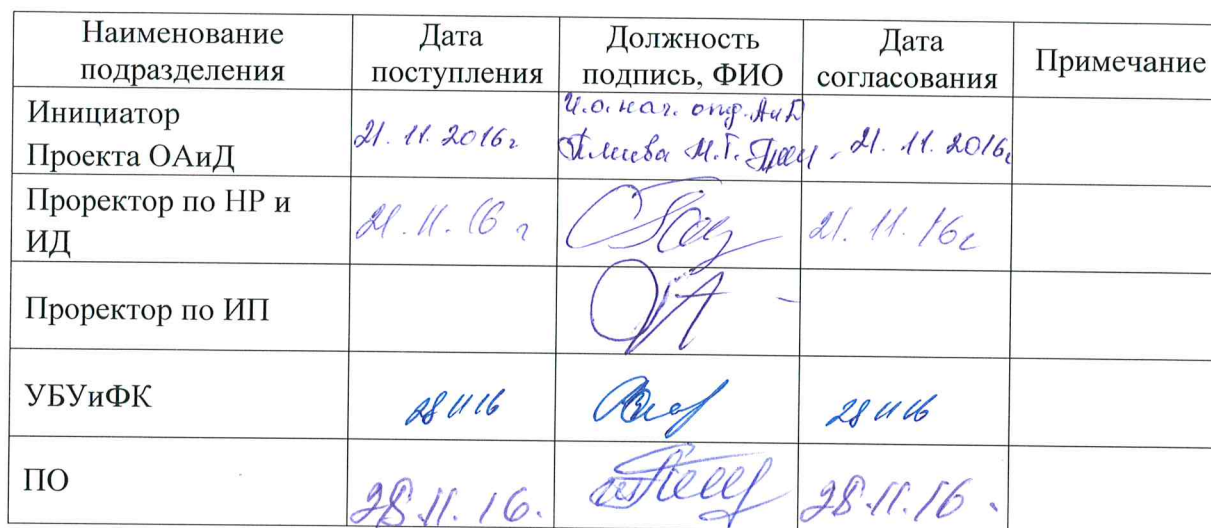 Наименование подразделения
Дата поступления
Должность подпись, ФИО
Дата согласования
Примечание
Инициатор Проекта ОАиД
21. 11. 2016г
И.о. нач. отд. АиД
М.Г.
21. 11. 2016г
Проректор по НР и ИД
21. 11. 16 г
21. 11. 16г
Проректор по ИП
УБУиФК
28 11 16
28 11 16
ПО
28.11.16.
28.11.16.